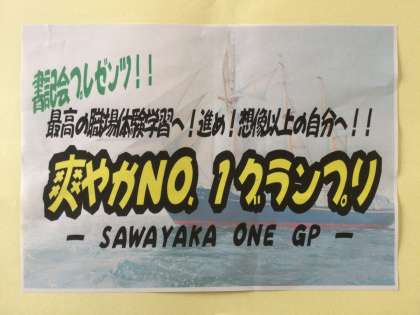 書記会プレゼンツ！！
最高の職場体験学習へ！進め！想像以上の自分へ！！
爽やかNO.1グランプリ
— SAWAYAKA ONE GP —